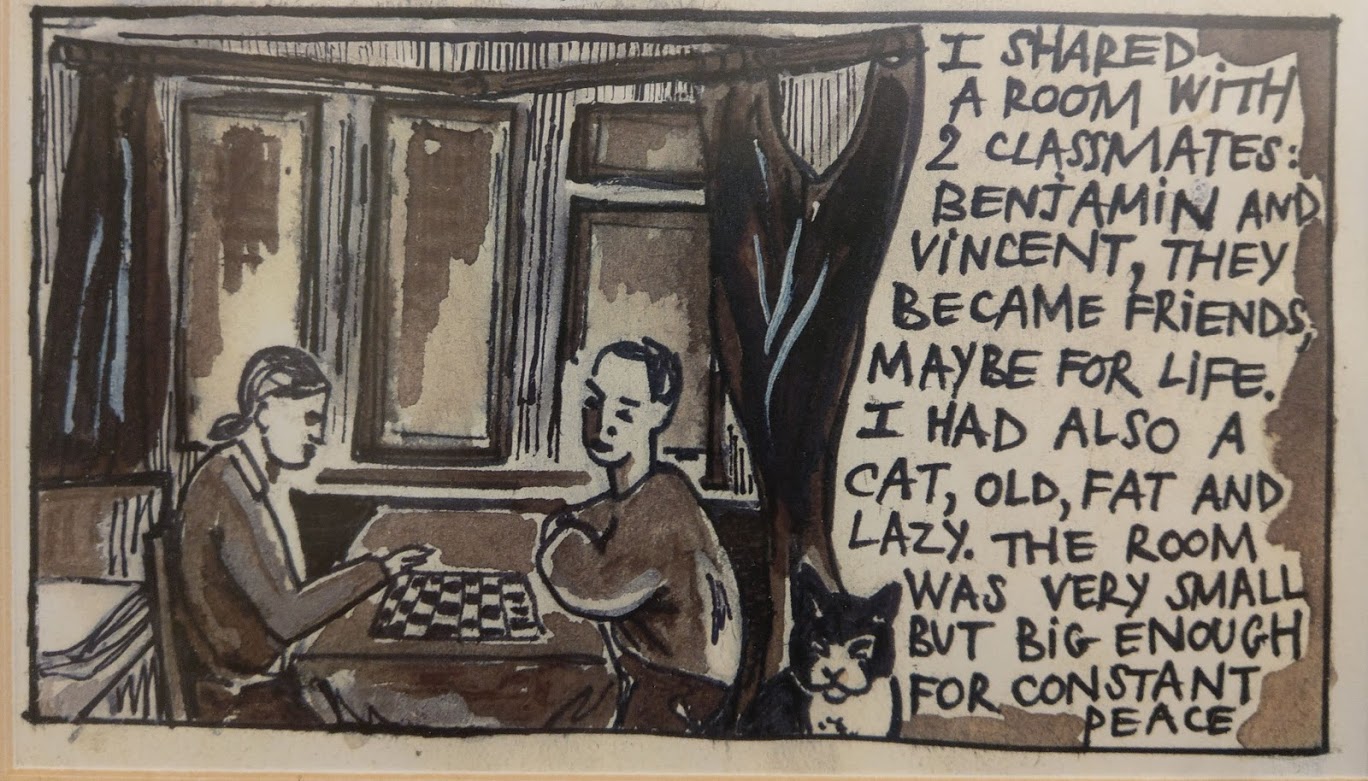 I SHARED
A ROOM WiTH
2 CLASSMATES:
BENJAMiN AND
ViNCENT, THEY
BECAME FRiENDS,
MAYBE FOR LiFE.
I HAD ALSO A
CAT, OLD, FAT AND
LAZY. THE ROOM
WAS VERY SMALL
BUT BiG ENOUGH
FOR CONSTANT
PEACE